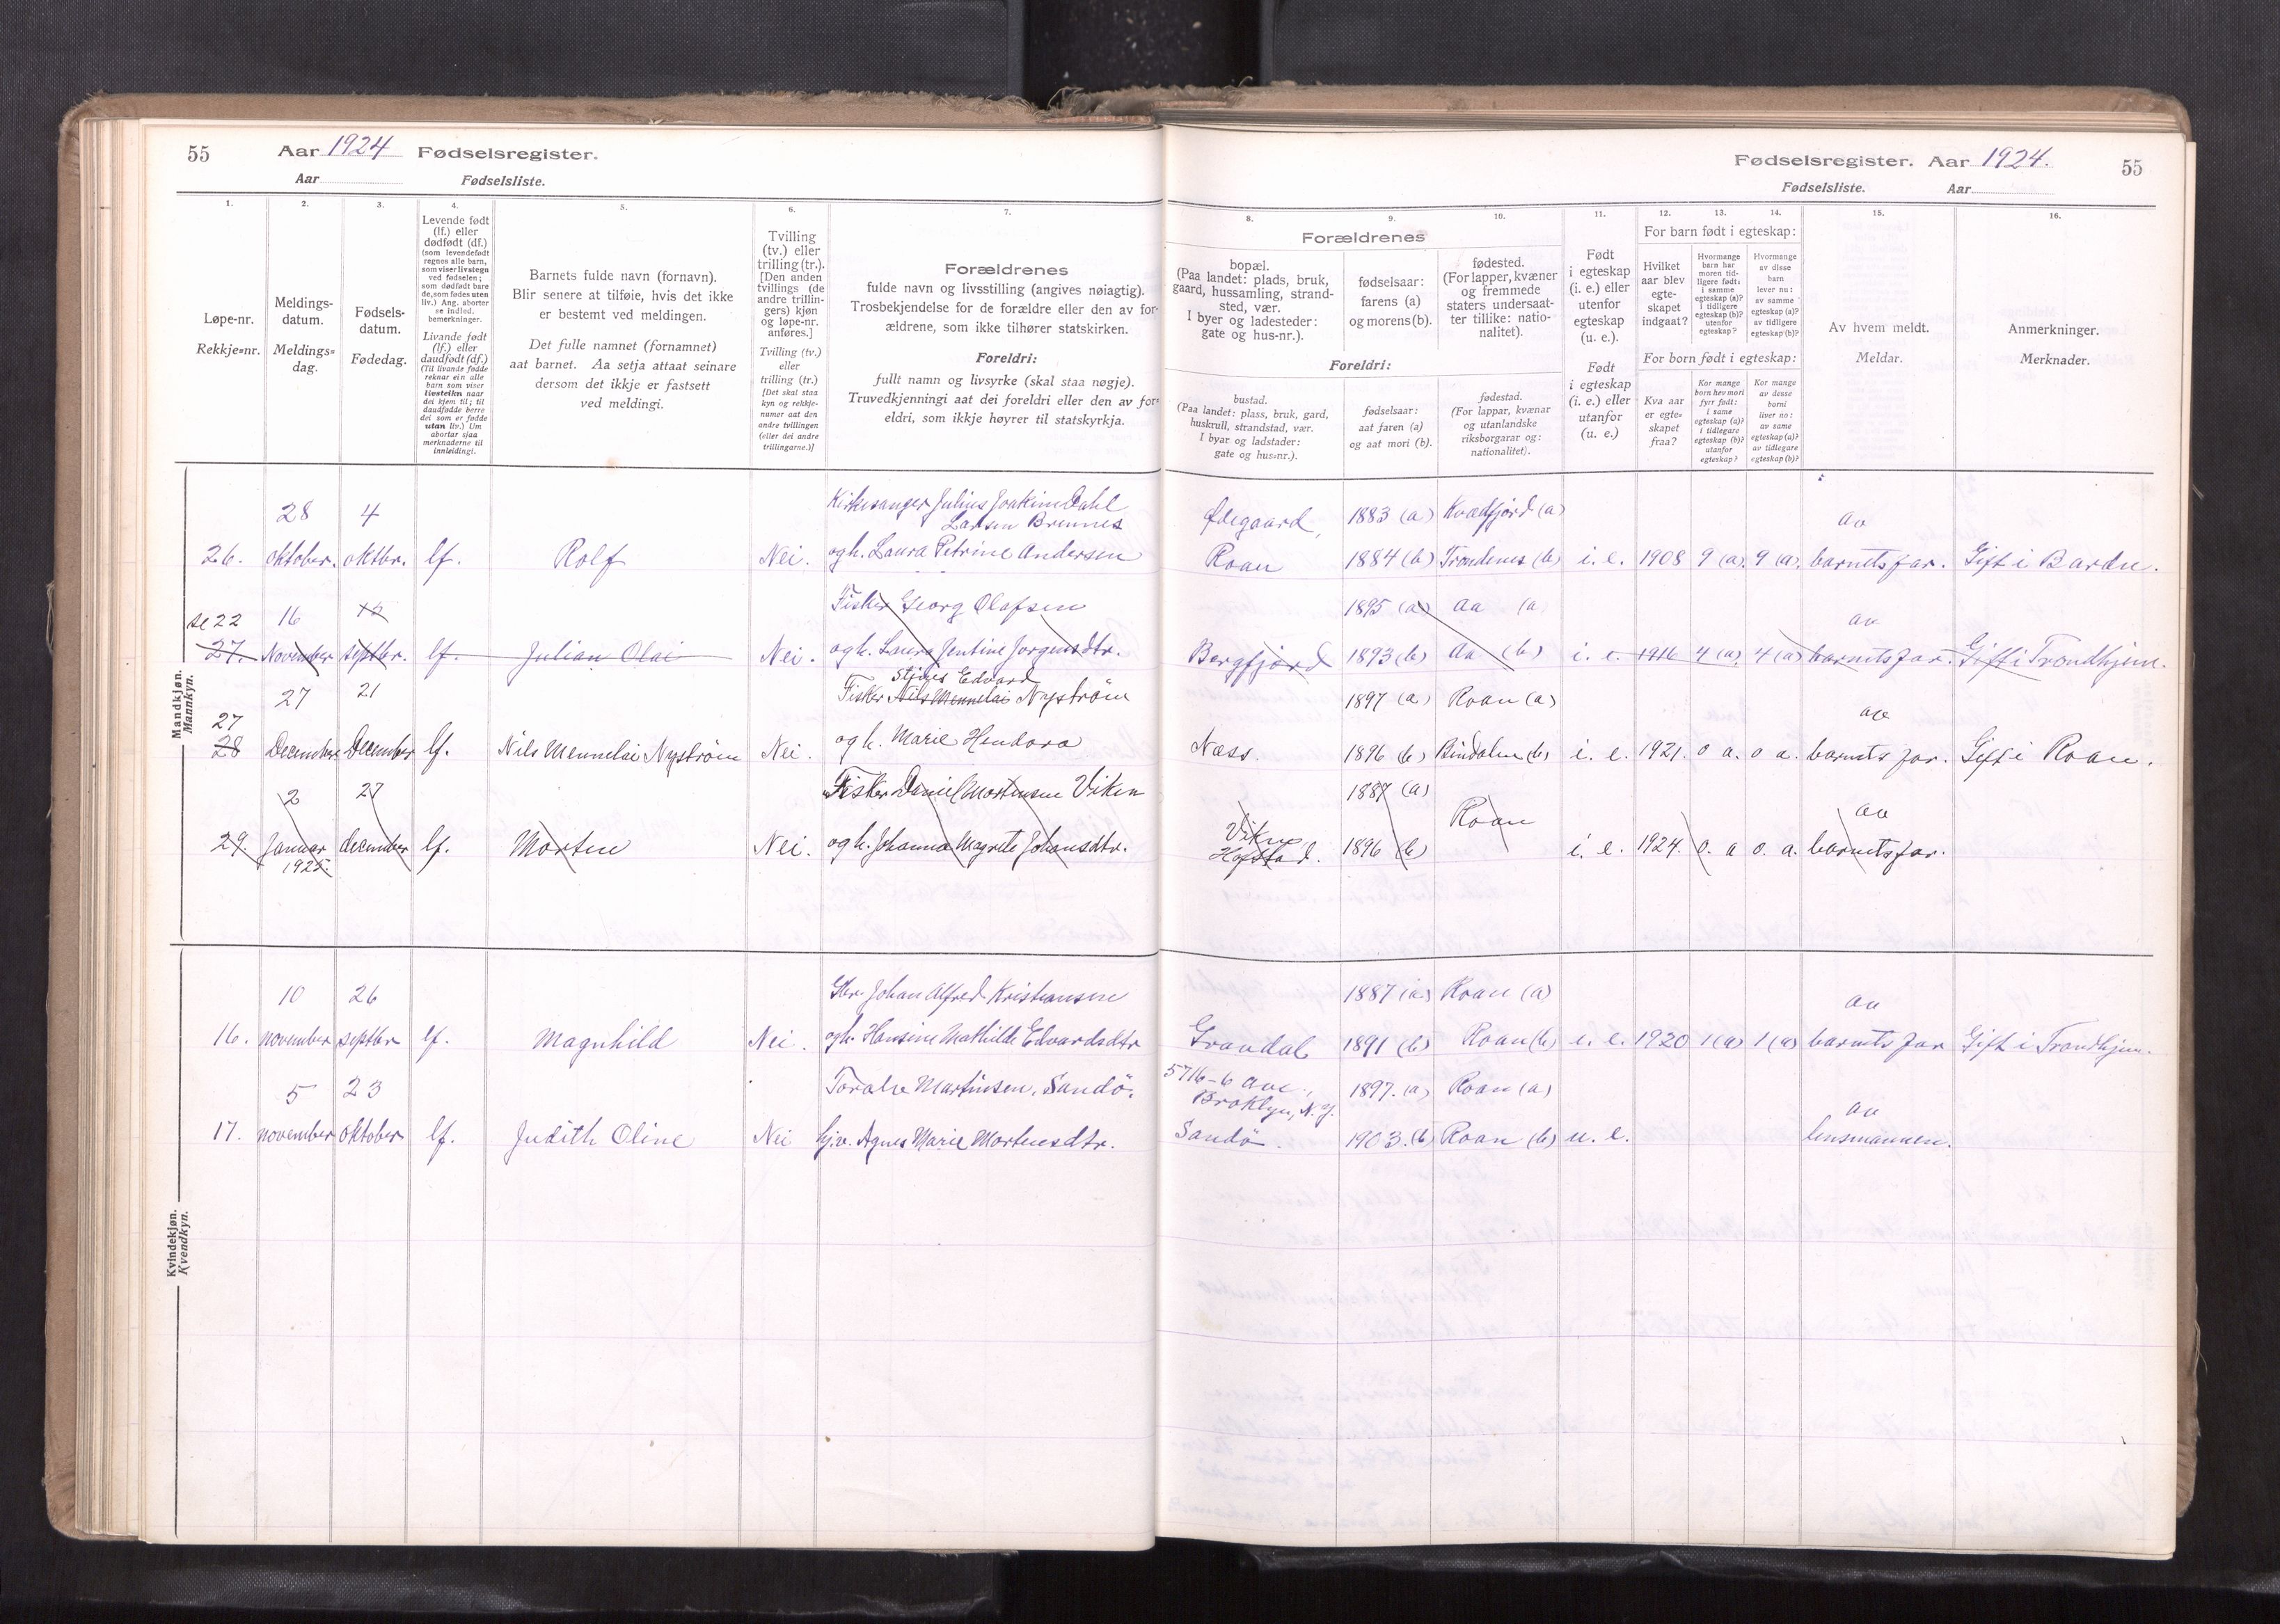 55 Aar 1924 Fødselsregister.
Aar Fødselsliste.
Fødselsregister. Aar 1924. 55
Fødselsliste. Aar
1. 2. 3. 4. 5. 6. 7.
Løpe-nr.
Rekkje=nr.
Meldings-
datum.
Meldings=
dag.
Fødsels-
datum.
Fødedag.
Levende født
(lf.) eller
dødfødt (df.)
(som levendefødt
regnes alle barn,
som viser livstegn
ved fødselen;
som dødfødt bare
de, som fødes uten
liv.) Ang. aborter
se indled.
bemerkninger.
Livande født
(lf.) eller
daudfødt (df.)
(Til livande fødde
reknar ein alle
barn som viser
livsteikn naar
dei kjem til; til
daudfødde berre
dei som er fødde
utan liv.) Um
abortar sjaa
merknaderne til
innleidingi.
Barnets fulde navn (fornavn).
Blir senere at tilføie, hvis det ikke
er bestemt ved meldingen.
Det fulle namnet (fornamnet)
aat barnet. Aa setja attaat seinare
dersom det ikkje er fastsett
ved meldingi.
Tvilling
(tv.) eller
trilling (tr.).
[Den anden
tvillings (de
andre trillin-
gers) kjøn
og løpe-nr.
anføres.]
Tvilling (tv.)
eller
trilling (tr.)
[Det skal staa
kyn og rekkje-
numer aat den
andre tvillingen
(eller dei andre
trillingarne.)]
Forældrenes
fulde navn og livsstilling (angives nøiagtig).
Trosbekjendelse for de forældre eller den av for-
ældrene, som ikke tilhører statskirken.
Foreldri:
fullt namn og livsyrke (skal staa nøgje).
Truvedkjenningi aat dei foreldri eller den av for-
eldri, som ikkje høyrer til statskyrkja.
8. 9. 10. 11. 12. 13. 14. 15. 16.
Forældrenes
bopæl.
(Paa landet: plads, bruk,
gaard, hussamling, strand-
sted, vær.
I byer og ladesteder:
gate og hus-nr.).
fødselsaar:
farens (a)
og morens (b).
fødested.
(For lapper, kvæner
og fremmede
staters undersaat-
ter tillike: natio-
nalitet).
Foreldri:
bustad.
(Paa landet: plass, bruk, gard,
huskrull, strandstad, vær.
I byar og ladstader:
gate og hus=nr.).
fødselsaar:
aat faren (a)
og aat mori (b).
fødestad.
(For lappar, kvænar
og utanlandske
riksborgarar og:
nationalitet).
Født
i egteskap
(i. e.) eller
utenfor
egteskap
(u. e.).
Født
i egteskap
(i. e.) eller
utanfor
(u. e.)
For barn født i egteskap:
Hvilket
aar blev
egte-
skapet
indgaat?
Hvormange
barn har
moren tid-
ligere født:
i samme
egteskap (a)?
i tidligere
egteskap (b)?
utenfor
egteskap?
Hvormange
av disse
barn
lever nu:
av samme
egteskap (a)?
av tidligere
egteskap (b)?
For born født i egteskap:
Kva aar
er egte=
skapet
fraa?
Kor mange
born hev mori
fyrr født:
i same
egteskap (a)?
i tidlegare
egteskap (b)?
utanfor
egteskap?
Kor mange
av desse
borni
liver no:
av same
egteskap (a)?
av tidlegare
egteskap (b)?
Av hvem meldt.
Meldar.
Anmerkninger.
Merknader.
Mandkjøn.
Mannkyn.
28 4 Kirkesanger Julius Joakim Dahl
Larsen Brennes Ødegaard, 1883 (a) Kvædfjord (a) av
26. oktober. oktbr. lf. Rolf Nei. og h. Laura Petrine Andersen Roan 1884 (b) Trondenes (b) i. e. 1908 9 (a). 9 (a). barnets far. Gift i Bardu.
se 22 16 12 Fisker Georg Olafsen 1895 (a) Aa (a av
27. November septbr. lf. Julian Olai Nei. og h. Laura Jentine Jørgensdtr. Bergfjord 1893 (b) Aa (b) i. e. 1916 4 (a). 4 (a) barnets far. Gift i Trondhjem.
Edvard
27 21 Fisker Nils Mennelai Nystrøm 1897 (a) Roan (a) av
27
28 December December lf. Nils Mennelai Nystrøm Nei. og h. Marie Hendora Næss. 1896 (b) Bindalen (b) i. e. 1921. 0 a. 0 a. barnets far. Gift i Roan.
2 27 Fisker Daniel Mortensen Viken Viken 1887 (a) Roan av
29. Januar december lf. Morten Nei. og h. Johanna Magrete Johansdtr. Hofstad. 1896 (b) i. e. 1924. 0. a 0. a. barnets far.
1925.
Kvindekjøn.
Kvendkyn.
10 26 Gbr. Johan Alfred Kristiansen 1887 (a) Roan (a) av
16. november septbr lf. Magnhild Nei. og h. Hansine Mathilde Edvardsdtr Grandal 1891 (b) Roan (b) i. e. 1920 1 (a) 1 (a) barnets far Gift i Trondhjem.
5 23 Toralv Martinsen, Sandö. 5716-6 Ave., Broklyn, N. Y. 1897. (a) Roan (a) av
17. november oktober lf. Judith Oline Nei hj.v. Agnes Marie Mortensdtr. Sandö. 1903. (b) Roan (b) u. e. lensmannen.